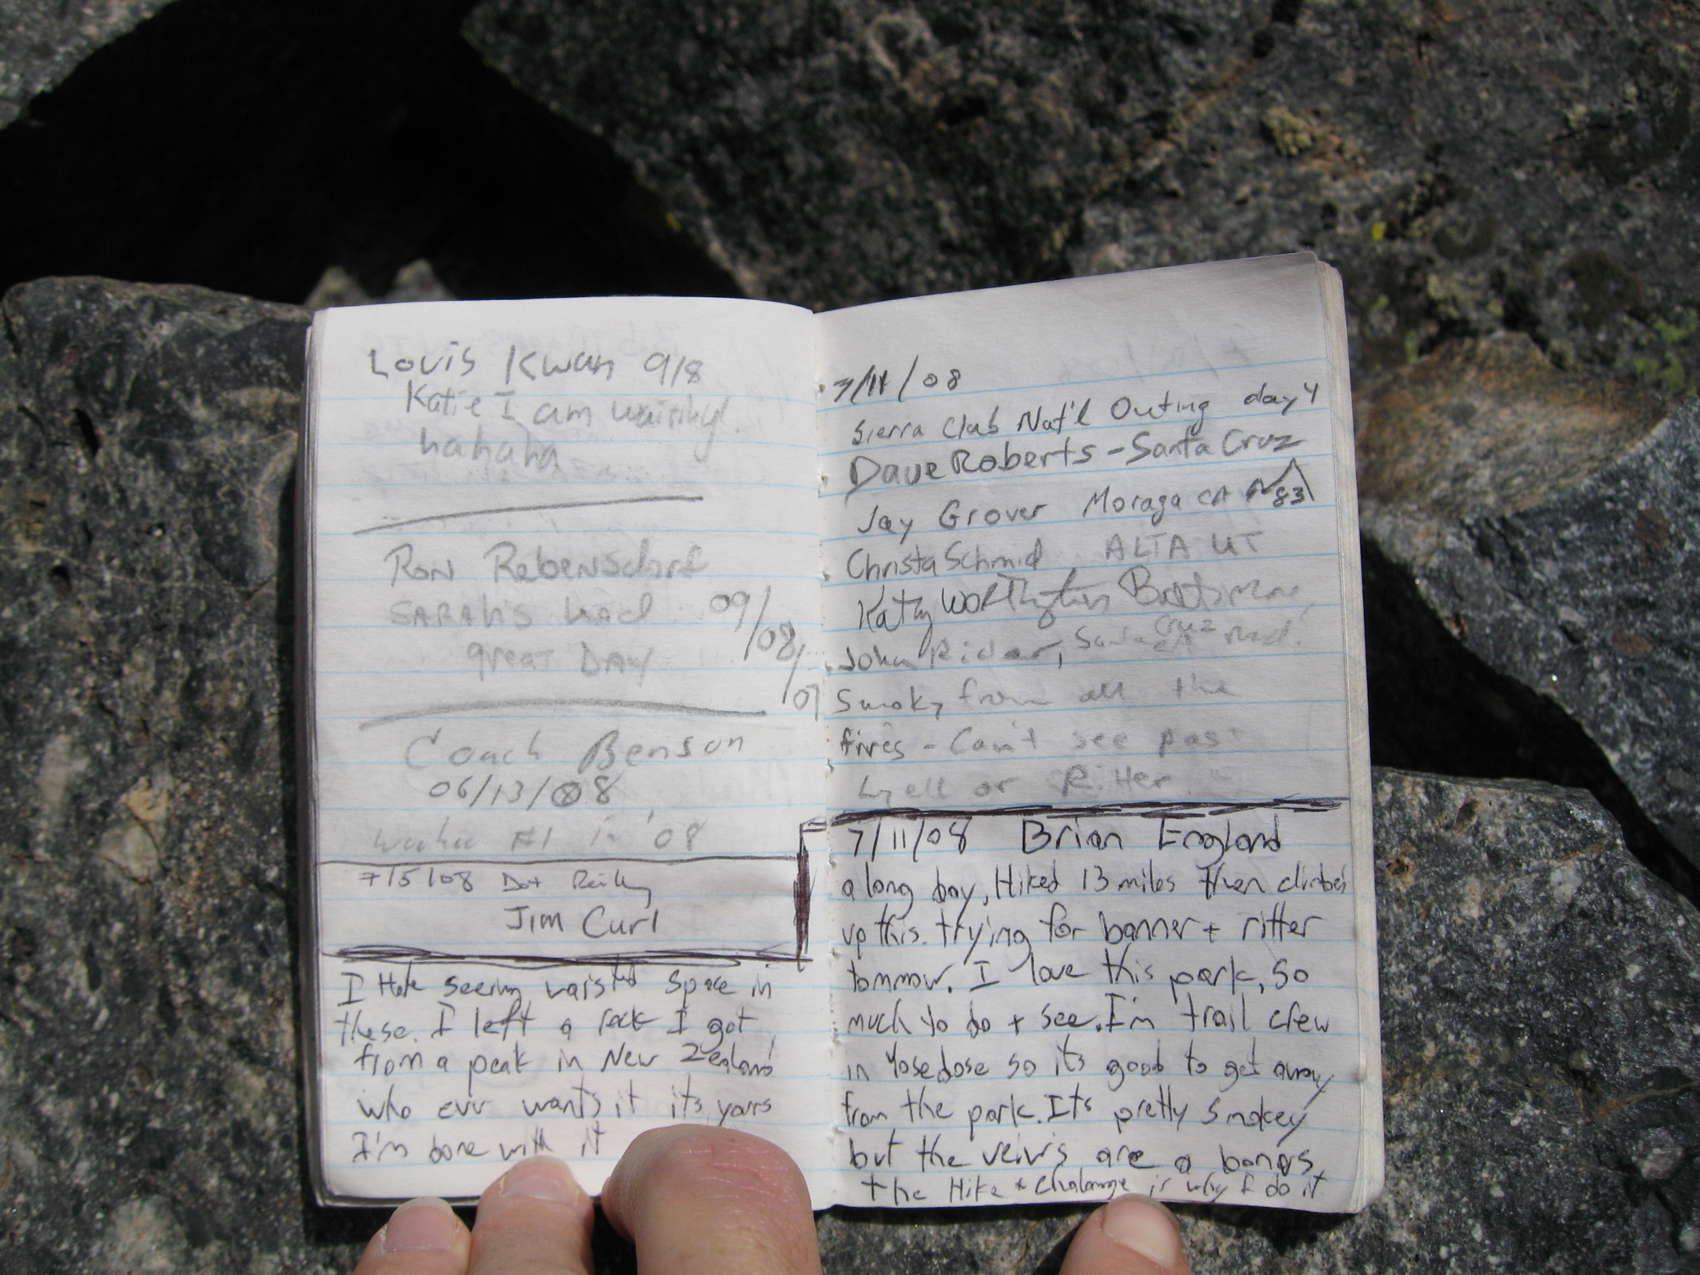 Louis Kwan 9/8
Katie I am waiting!
hahaha
Ron Rebensdorf
SARAH'S Used 09/08/07
great DAY
Coach Benson
06/13/08
#1 in '08
7/5/08 Dot Reilly
Jim Curl
I Hate seeing waisted space in
these. I left a rock I got
from a peak in New Zealand
who evur wants it its yours
I'm done with it
7/11/08
Sierra Club Nat'l Outing day 4
Dave Roberts - Santa Cruz
Jay Grover Moraga CA 83
Christa Schmid ALTA UT
Kathy Worthington
John Rider, Santa Cruz
Smoky from all the
fires - Can't see past
Lyell or Ritter
7/11/08 Brian England
a long day, Hiked 13 miles then climbed
up this. trying for banner + ritter
tommow. I love this park, So
much to do + see. I'm trail crew
in Yosedose so its good to get away
from the park. Its pretty smokey
but the veiws are a bonus
the Hike + Chalange is why I do it